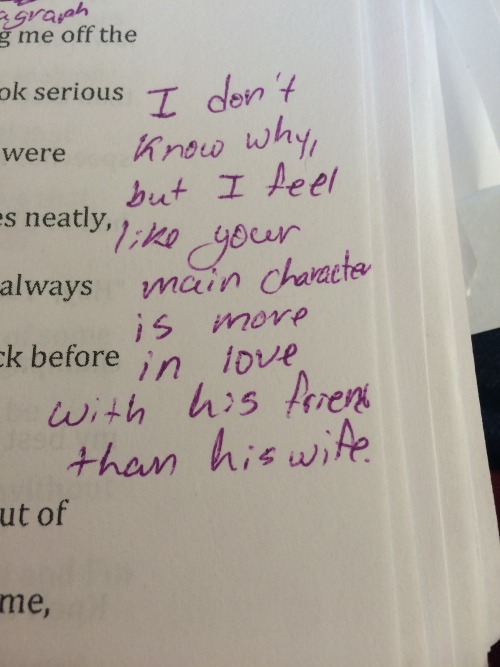 agraph
g me off the
ok serious
were
es neatly,
always
ck before
ut of
me,
I don't
know why,
but I feel
like your
main character
is more
in love
with his friend
than his wife.